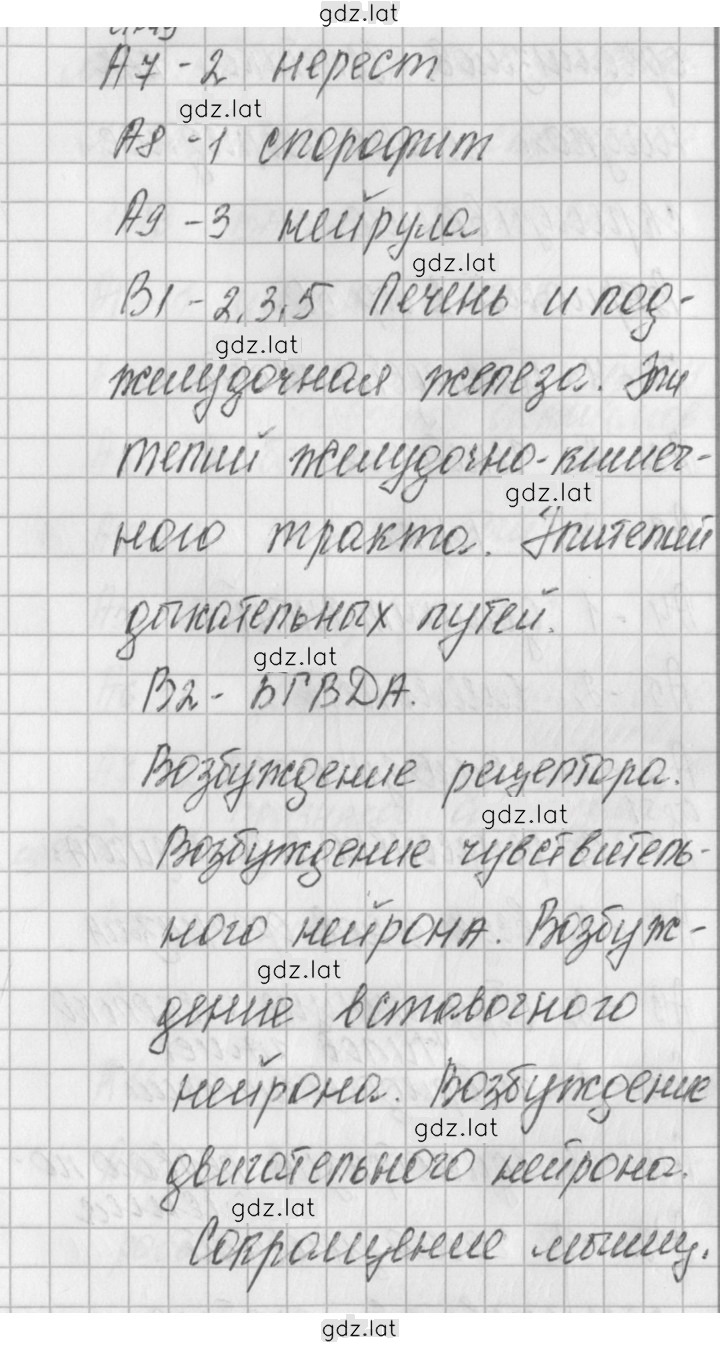 gdz.lat
А7 - 2 нерест
gdz.lat
А8 - 1 спорофит
А9 - 3 нейрула
gdz.lat
В1 - 2,3,5 Печень и под-
gdz.lat
желудочная железа. Эпи
телий желудочно-кишеч-
gdz.lat
ного тракта. Эпителий
дыхательных путей.
gdz.lat
В2 - БГВДА.
Возбуждение рецептора.
gdz.lat
Возбуждение чувствитель-
ного нейрона. Возбуж-
gdz.lat
дение вставочного
нейрона. Возбуждение
gdz.lat
двигательного нейрона.
gdz.lat
Сокращение мышц.
gdz.lat